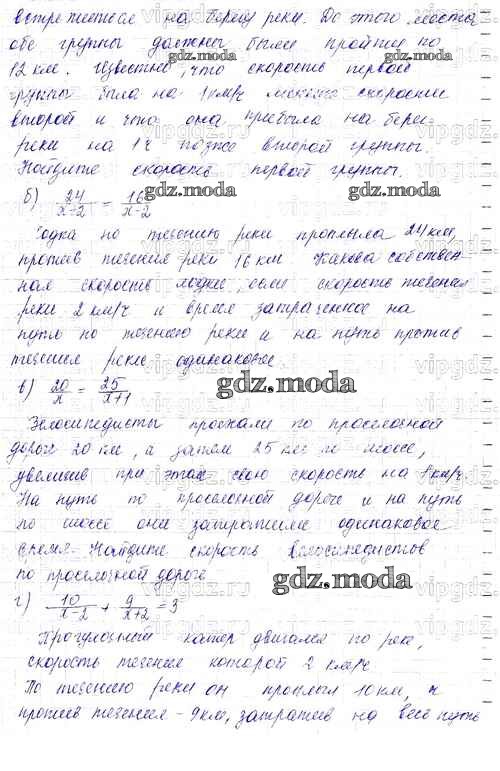 встретиться на берегу реки. До этого места
обе группы должны были пройти по
12 км. Известно, что скорость первой
группы была на 1 км/ч меньше скорости
второй и что она прибыла на берег
реки на 1 ч позже второй группы.
Найдите скорость первой группы.
б) 24/(x-2) = 16/(x-2)
Лодка по течению реки проплыла 24 км,
против течения реки 16 км. Какова собствен-
ная скорость лодки, если скорость течения
реки 2 км/ч и время затраченное на
путь по течению реки и на путь против
течения реки одинаковое.
в) 20/x = 25/(x+1)
Велосипедисты проехали по проселочной
дороге 20 км, а затем 25 км по шоссе,
увеличив при этом свою скорость на 1 км/ч
На путь по проселочной дороге и на путь
по шоссе они затратили одинаковое
время. Найдите скорость велосипедистов
по проселочной дороге
г) 10/(x-2) + 9/(x+2) = 3
Прогулочный катер двигался по реке,
скорость течения которой 2 км/ч
По течению реки он проплыл 10 км, и
против течения - 9 км, затратив на весь путь
gdz.moda
gdz.moda
gdz.moda
gdz.moda
gdz.moda
gdz.moda
gdz.moda